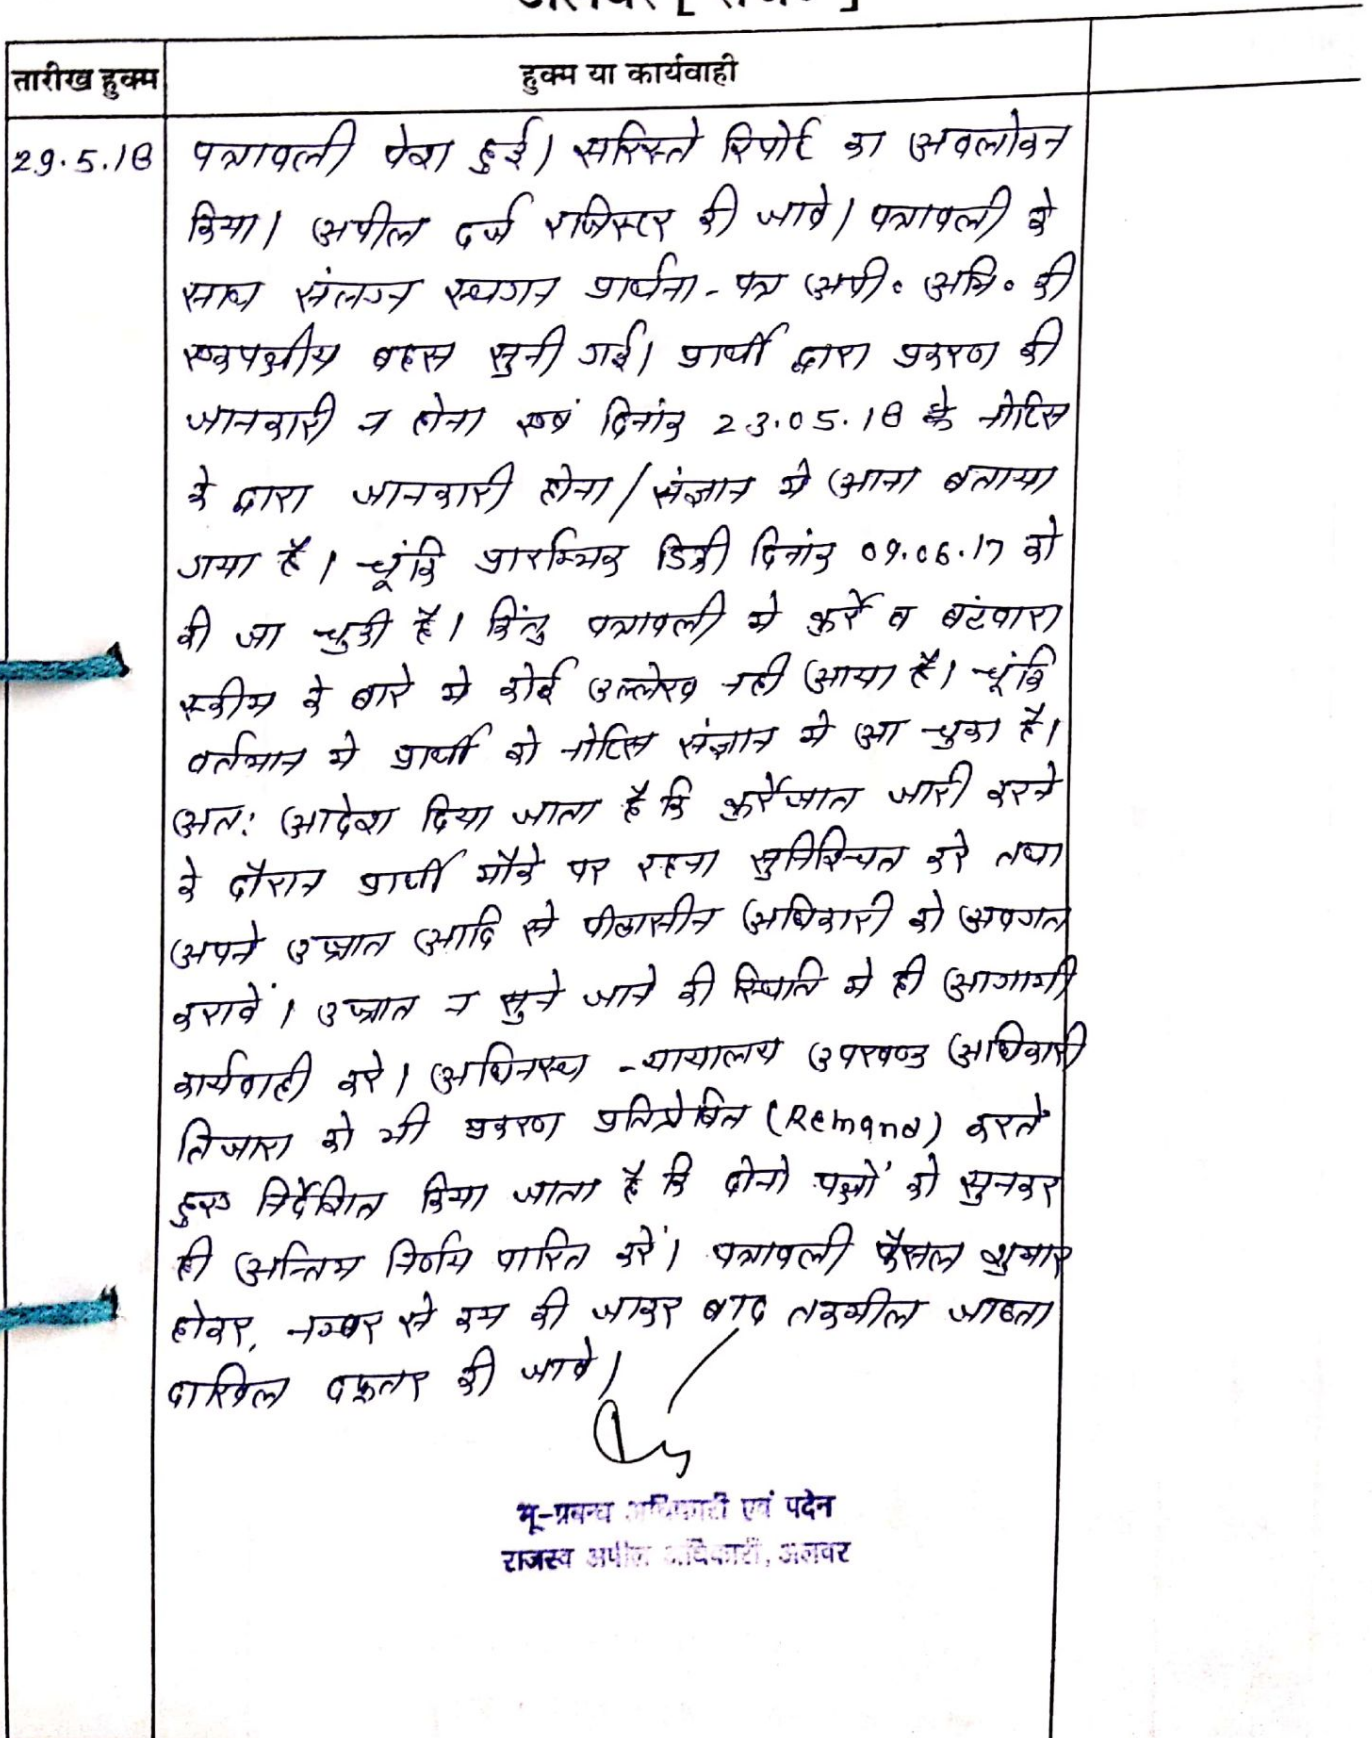 अलवर [ राज० ]
तारीख हुक्म
हुक्म या कार्यवाही
29.5.18
पत्रावली पेश हुई। सरिस्ते रिपोर्ट का अवलोकन
किया। अपील दर्ज रजिस्टर की जावे। पत्रावली के
साथ संलग्न स्थगन प्रार्थना-पत्र अपी० अभि० की
एकपक्षीय बहस सुनी गई। प्रार्थी द्वारा प्रकरण की
जानकारी न होना एवं दिनांक 23.05.18 के नोटिस
के द्वारा जानकारी होना/संज्ञान मे आना बताया
गया है। चूंकि प्रारम्भिक डिक्री दिनांक 09.06.17 को
की जा चुकी है। किंतु पत्रावली मे कुर्रे व बंटवारा
स्कीम के बारे मे कोई उल्लेख नही आया है। चूंकि
वर्तमान मे प्रार्थी को नोटिस संज्ञान मे आ चुका है।
अतः आदेश दिया जाता है कि कुर्रेजात जारी करने
के दौरान प्रार्थी मौके पर रहना सुनिश्चित करे तथा
अपने उज्रात आदि से पीठासीन अधिकारी को अवगत
करावें। उज्रात न सुने जाने की स्थिति मे ही आगामी
कार्यवाही करे। अधिनस्थ न्यायालय उपखण्ड अधिकारी
तिजारा को भी प्रकरण प्रतिप्रेषित (Remand) करते
हुए निर्देशित किया जाता है कि दोनो पक्षों को सुनकर
ही अन्तिम निर्णय पारित करें। पत्रावली फैसल शुमार
होकर, नम्बर से कम की जाकर बाद तकमील जाब्ता
दाखिल दफ्तर की जावे।
भू-प्रबन्ध अधिकारी एवं पदेन
राजस्व अपील अधिकारी, अलवर